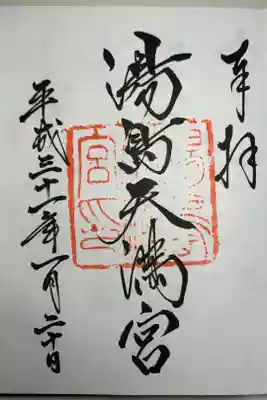 奉拝
湯島天満宮
平成三十一年一月二十日